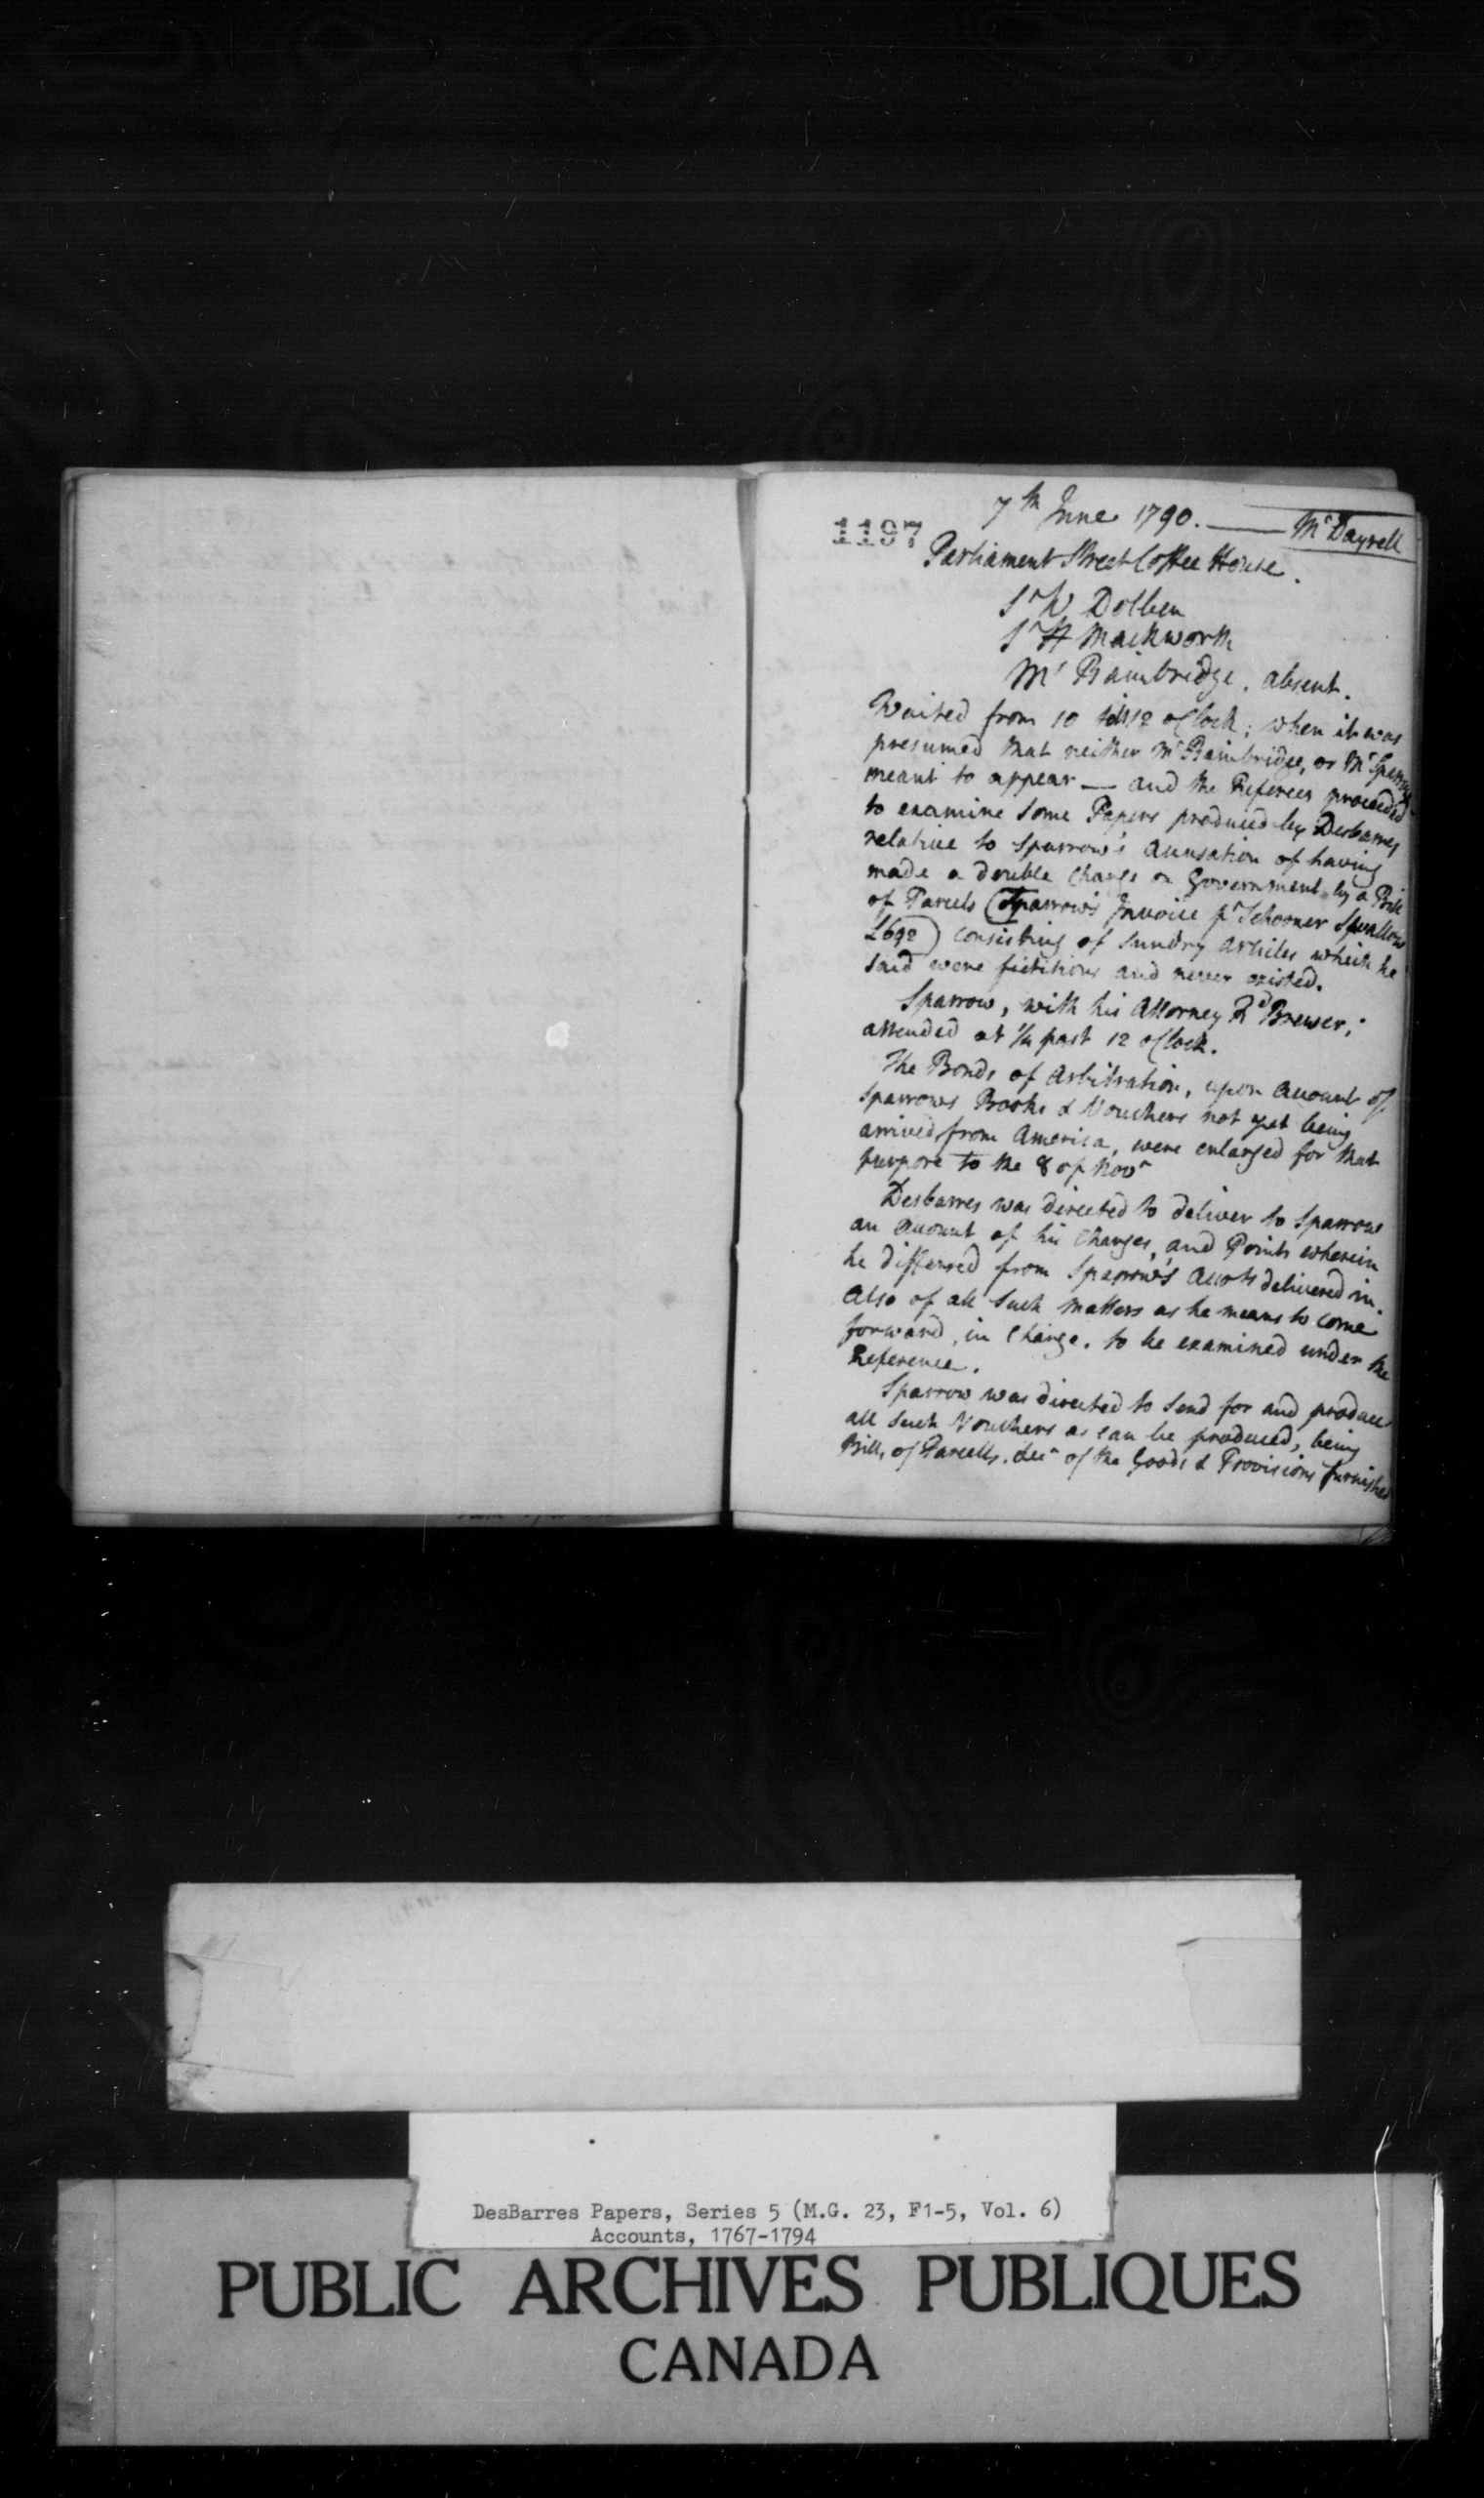 1197
7th June 1790. — Mr Dayrell
Parliament Street Coffee House.
Sr W Dolben
Sr H Mackworth
Mr Bainbridge, absent.
Waited from 10 till 12 oClock; when it was
presumed that neither Mr Bainbridge, or Mr Sparrow
meant to appear — and the Referees proceeded
to examine some Papers produced by Desbarres
relative to Sparrow's accusation of having
made a double Charge on Government by a Bill
of Parcels (Sparrow's Invoice pr Schooner Swallow
£692) consisting of sundry articles which he
said were fictitious and never existed.
Sparrow, with his Attorney Rd Brewer,
attended at 1/4 past 12 oClock.
The Bonds of Arbitration, upon account of
Sparrows Books & Vouchers not yet being
arrived from America, were enlarged for that
purpose to the 8 of Novr
Desbarres was directed to deliver to Sparrow
an account of his Charges, and Points wherein
he differred from Sparrow's Accots delivered in.
Also of all such matters as he means to come
forward, in Charge. to be examined under the
Reference.
Sparrow was directed to send for and produce
all such Vouchers as can be produced, being
Bills of Parcells, &ca of the Goods & Provisions furnished
DesBarres Papers, Series 5 (M.G. 23, F1-5, Vol. 6)
Accounts, 1767-1794
PUBLIC ARCHIVES PUBLIQUES
CANADA